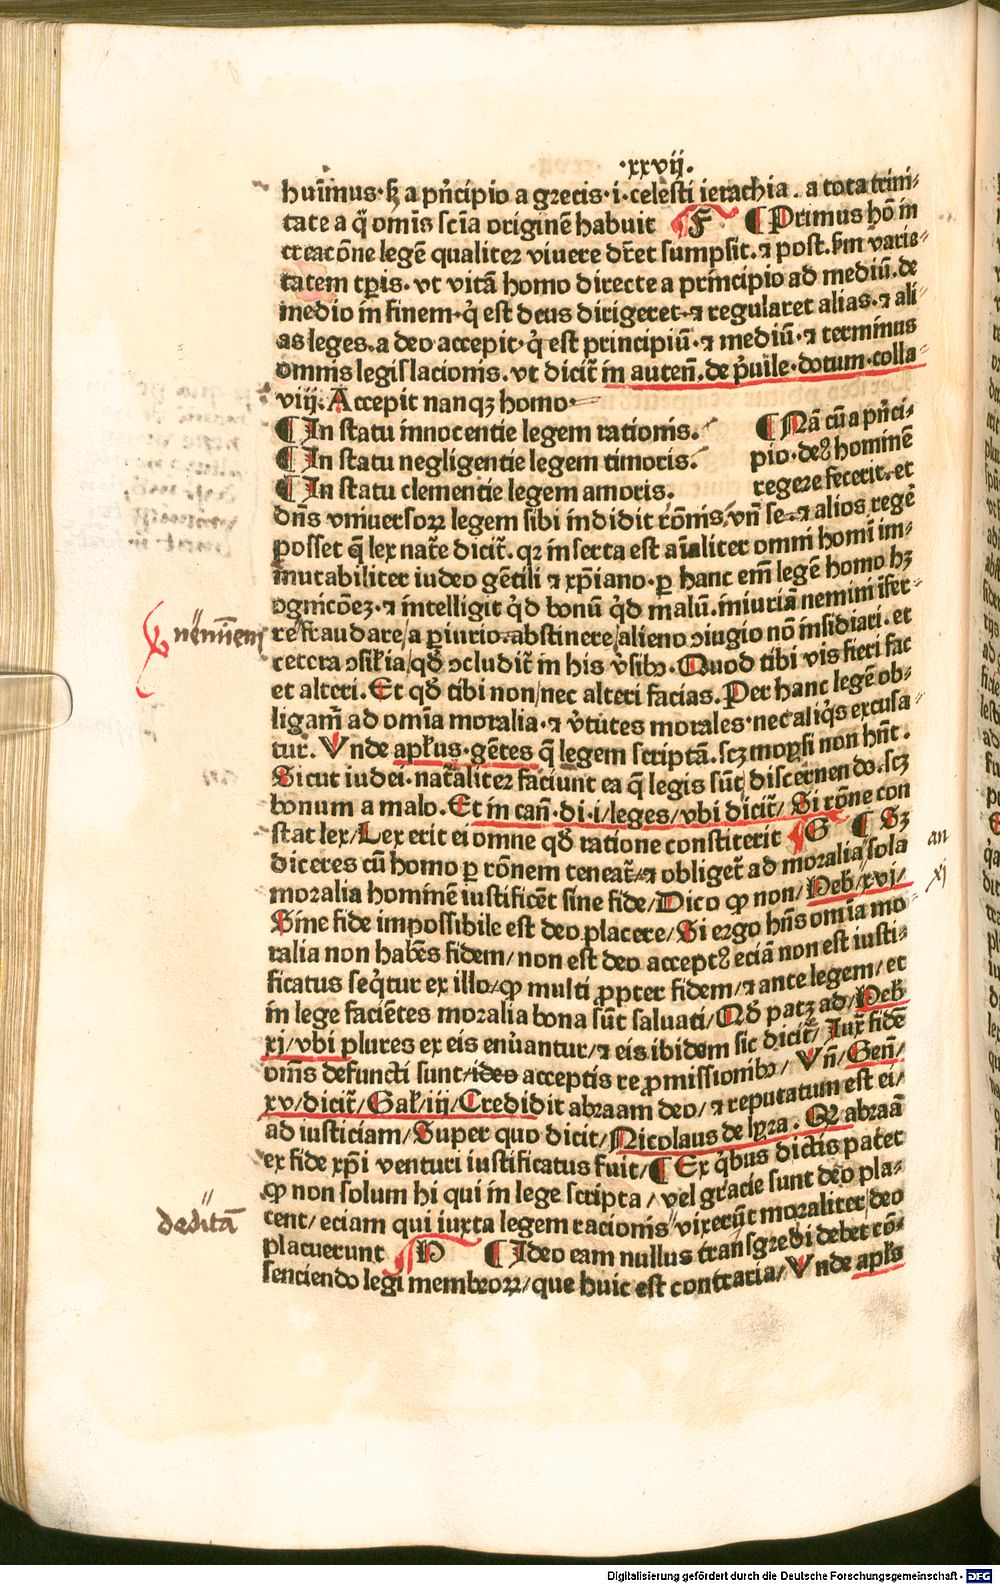 ·xxvij·
huim̄us·sꝫ a pn̄cipio a grecis·i·celesti ierachia. a tota trini⸗
tate a q̄ om̄is sciā originē habuit F ¶ Primus hō in
creacōne legē qualiter viuere dr̄et sumpsit. ⁊ post. ẜm varie⸗
tatem tꝑis. vt vitā homo directe a principio ad mediū. de
medio in finem·q̇ est deus dirigeret·⁊ regularet alias. ⁊ ali⸗
as leges. a deo accepit· q̇ est principiū·⁊ mediū·⁊ terminus
omnis legislacionis. vt dicit̄ in auten̄. de p̓uile·dotum·colla⸗
viij. Accepit nanqꝫ homo·
¶ In statu innocentie legem rationis.
¶ In statu negligentie legem timoris.
¶ In statu clementie legem amoris.
¶ Nā cū a pn̄ci⸗
pio·deꝰ hominē
regere fecerit. et
dn̄s vniuersoꝝ legem sibi indidit rōnis. vn̄ se ⁊ alios regē
posset q̄ lex nat̄e dicit̄. qꝛ inserta est aīaliter omni homī im⸗
mutabiliter iudeo gētili ⁊ xp̄iano·ꝑ hanc em̄ legē homo hꝫ
ognicōeꝫ·⁊ intelligit q̇d bonū q̇d malū. iniuriā nemini īfer⸗
re fraudare/a ꝑiurio abstinere/alieno ↄiugio nō insidiari·et
cetera ↄsil̄ia/qð ↄcludit̄ in his vsibꝫ·Quod tibi vis fieri fac
et alteri. Et qð tibi non/nec alteri facias. Per hanc legē ob⸗
ligam̄ ad om̄ia moralia·⁊ v̓tutes morales·nec aliq̇s excusa⸗
tur. Vnde apl̄us·gētes q̄ legem scriptā. scꝫ moysi non hn̄t.
Sicut iudei·nat̄aliter faciunt ea q̄ legis sūt discernendo. scꝫ
bonum a malo. Et in can̄·di·i/leges/vbi dicit̄/ Si rōne con
stat lex/Lex erit ei omne qð ratione constiterit G ¶ Sꝫ
diceres cū homo ꝑ rōnem teneat̄/⁊ obliget̄ ad moralia sola
moralia hominē iustificēt sine fide/Dico ꝙ non/Heb/xvj/
Sine fide impossibile est deo placere/Si ergo hn̄s om̄ia mo
ralia non habēs fidem/non est deo acceptꝰ eciā non est iusti⸗
ficatus seq̇tur ex illo/ꝙ multi ꝓpter fidem/⁊ ante legem/et
in lege faciētes moralia bona sūt saluati/Qð patꝫ ad/Heb
xj/vbi plures ex eis enūantur/⁊ eis ibidem sic dicit̄/Iux̄ fidē
om̄s defuncti sunt/ideo acceptis repromissionibꝫ/ Vn̄/Gen̄/
xv/dicit̄/Gal̄/iij/Credidit abraam deo/⁊ reputatum est ei/
ad iusticiam/Super quo dicit/Nicolaus de lyra. Qꝛ abraā
ex fide xp̄i venturi iustificatus fuit/¶ Ex q̇bus dictis patet
ꝙ non solum hi qui in lege scripta/vel gracie sunt deo pla⸗
cent/eciam qui iuxta legem racionis vixerūt moraliter/deo
placuerunt H ¶ Ideo eam nullus transgredi debet cō⸗
senciendo legi membroꝝ/que huic est contraria/Vnde apl̄s
an
xj
deditā
Digitalisierung gefördert durch die Deutsche Forschungsgemeinschaft - DFG